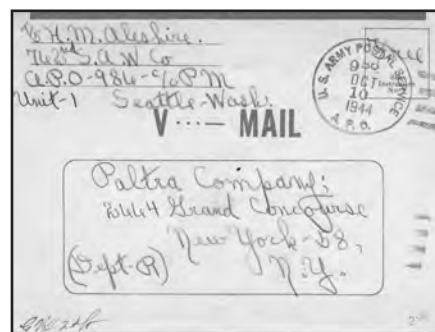 H.M. Aleshire.
762nd S.A.W Co
A.P.O-986-c/o PM
Unit-1 Seattle-Wash.
U.S. ARMY POSTAL SERVICE
OCT
10
1944
A.P.O.
V ···— MAIL
Paltra Company;
2444 Grand Concourse
New York-58,
(Dept-R) N.Y.